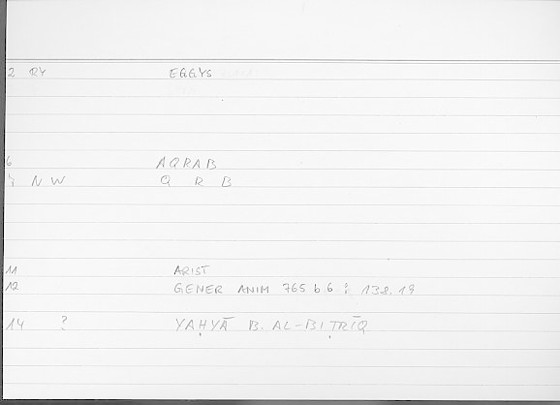 2 RY EGGYS
6 AQRAB
7 NW Q R B
11 ARIST
12 GENER ANIM 765 b 6 : 138.19
14 ? YAḤYĀ B. AL-BIṬRĪQ